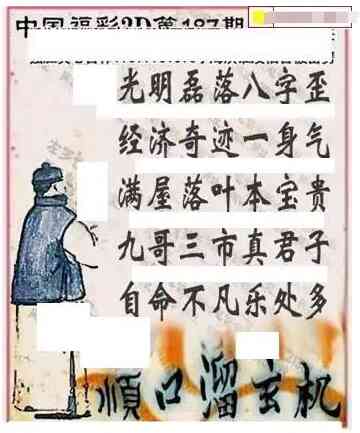 中国福彩3D第187期
光明磊落八字歪
经济奇迹一身气
满屋落叶本宝贵
九哥三市真君子
自命不凡乐处多
順口溜玄机